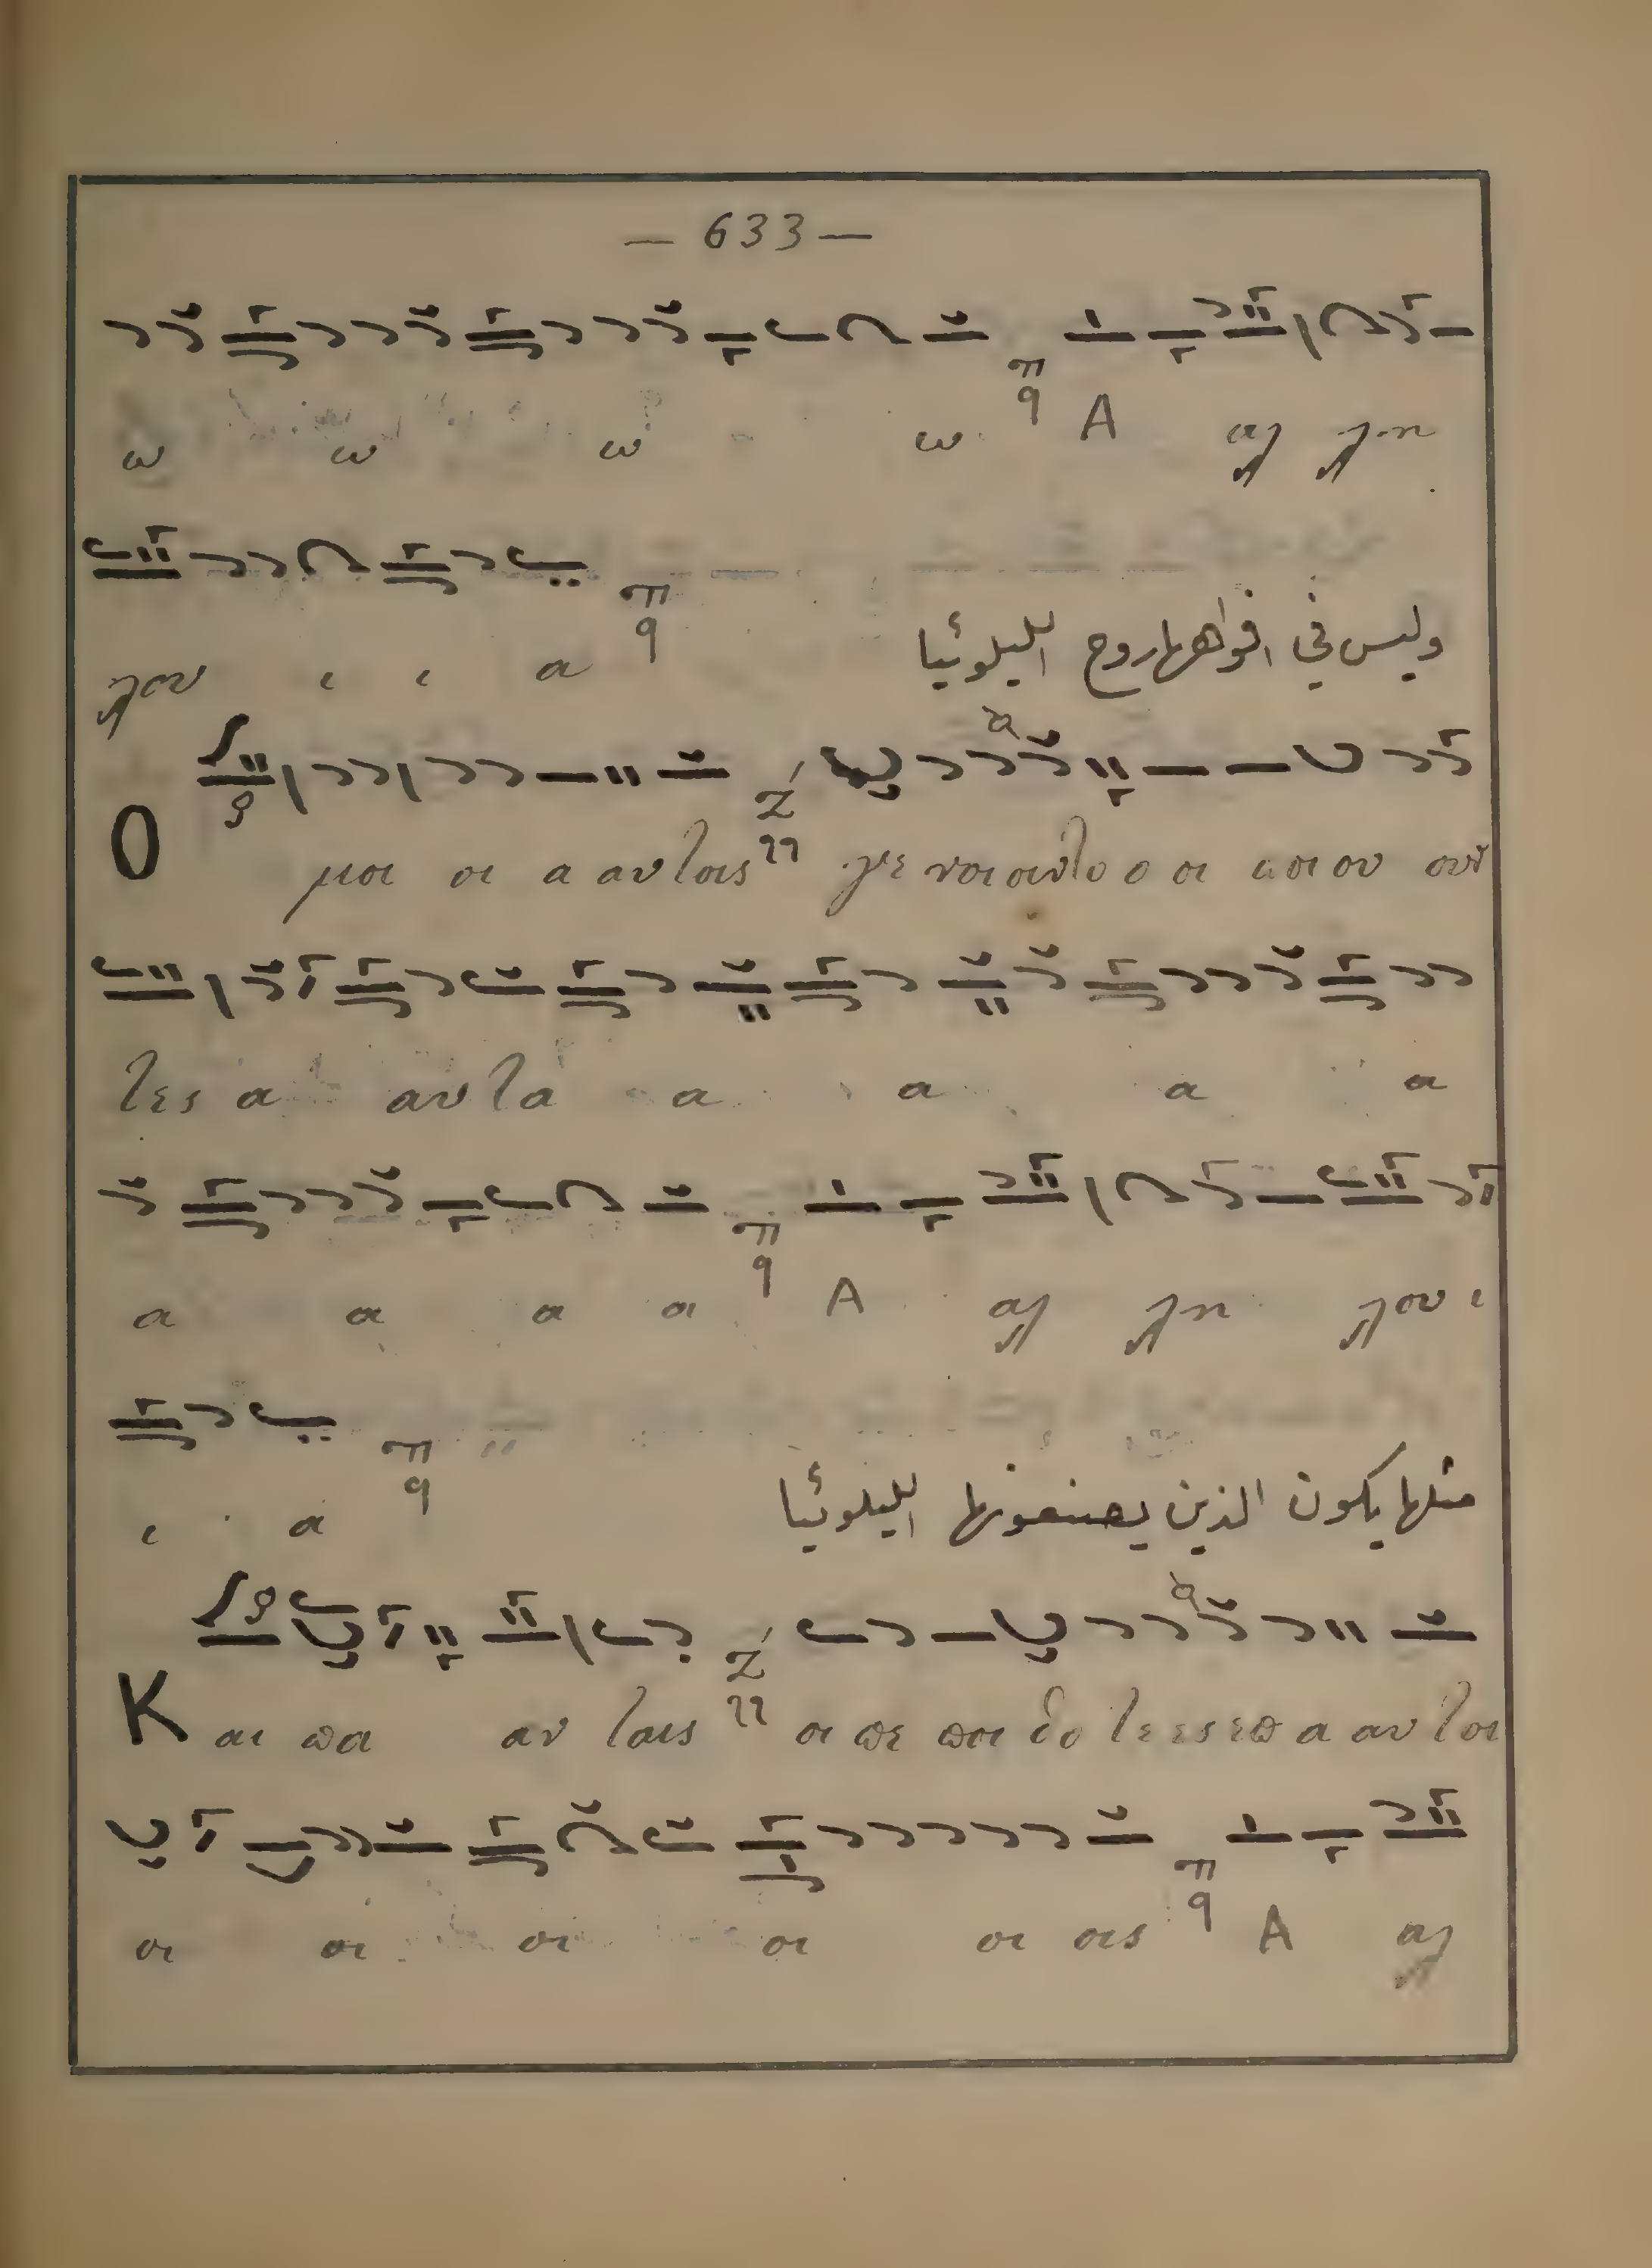 — 633 —
ω ω ω ω Α αλ λη
λου ι ι α
وليس في افواهها روح الليلوئيا
Ο μοι οι α αυτοις γε νοιοιντο ο οι ποι ου ουν
τες α αυτα α α α α
α α α α Α αλ λη λου ι
ι α
مثلها يكون الذين يصنعونها الليلوئيا
Κ αι πα αν τες οι πε ποι θο τε ες επ α αυ τοι
οι οι οι οι οι οις Α αλ